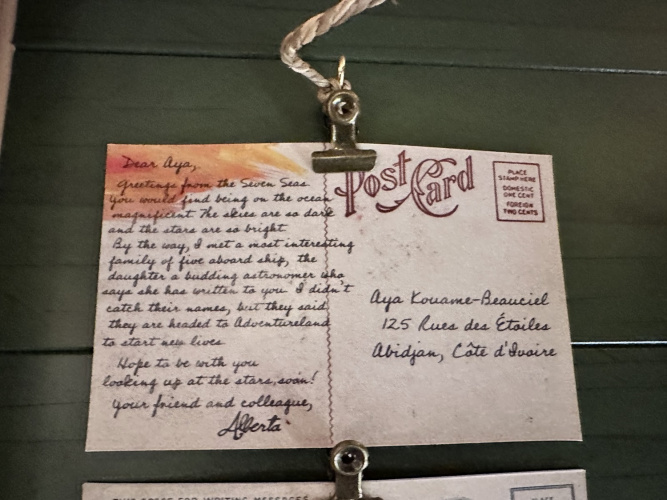 Dear Aya,
Greetings from the Seven Seas
You would find being on the ocean
magnificent. The skies are so dark
and the stars are so bright
By the way, I met a most interesting
family of five aboard ship, the
daughter a budding astronomer who
says she has written to you. I didn't
catch their names, but they said
they are headed to Adventureland
to start new lives
Hope to be with you
looking up at the stars, soon!
Your friend and colleague,
Alberta
Post Card
PLACE
STAMP HERE
DOMESTIC
ONE CENT
FOREIGN
TWO CENTS
Aya Kouame-Beauciel
125 Rues des Étoiles
Abidjan, Côte d'Ivoire
THIS SPACE FOR WRITING MESSAGES